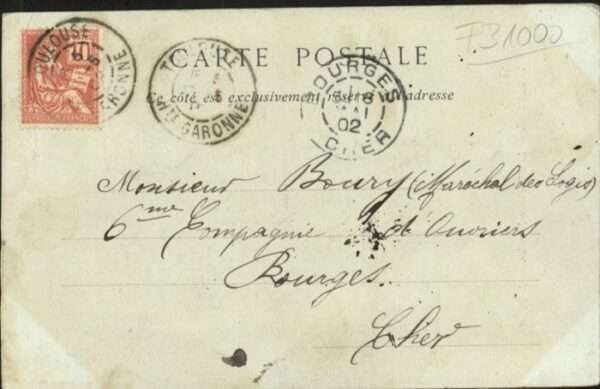 F31000
CARTE POSTALE
Ce côté est exclusivement réservé à l'adresse
TOULOUSE
GARONNE
10
TOULOUSE
Hte GARONNE
BOURGES
MAI
02
CHER
Monsieur Boury (Maréchal des Logis)
6me Compagnie d'Ouvriers
Bourges
Cher